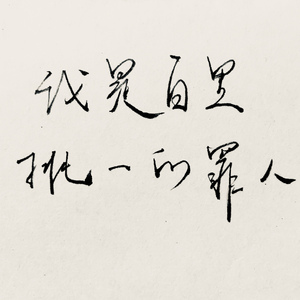 我是百里
挑一的罪人